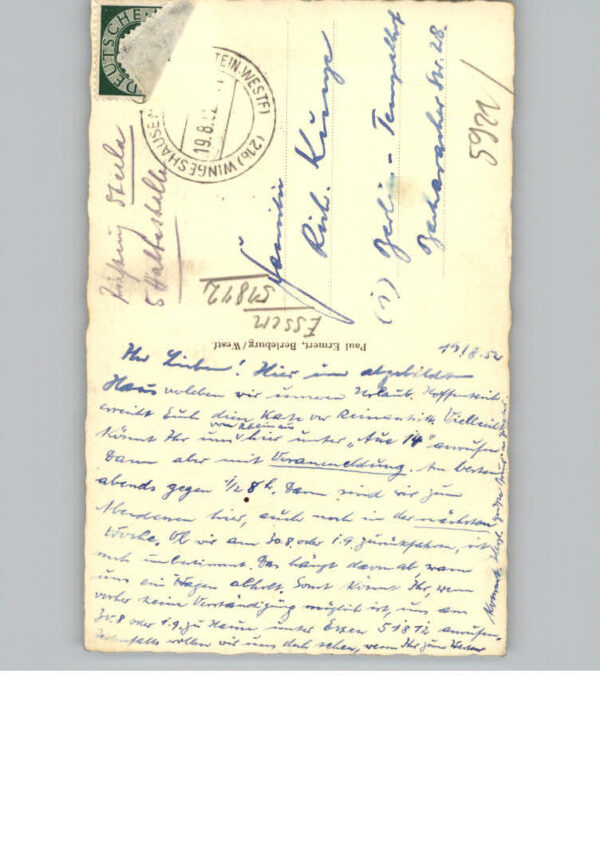 DEUTSCHE
TEIN.WESTF)
19.8.52
(21b) WINGESHAUSEN
Familie
Rich. Kunze
(1) Berlin-Tempelhof
Bacharacher Str. 28.
5921/
Essen
51812
Paul Ermert, Berleburg/Westf.
19/8.52
Ihr Lieben! Hier im abgebildeten
Haus verleben wir unseren Urlaub. Hoffentlich
erreicht Euch diese Karte vor Vielleicht
könnt Ihr uns hier unter „Aue 14" anrufen
von Rhein aus
Dann aber mit Voranmeldung. Am besten
abends gegen 1/2 8 h. Dann sind wir zum
Abendessen hier, auch noch in der nächsten
Woche. Ob wir am 30.8. oder 1.9. zurückfahren, ist
noch unbestimmt. Das hängt davon ab wann
uns ein Wagen abholt. Sonst könnt Ihr, wenn
vorher keine Verständigung möglich ist, uns am
30.8 oder 1.9. zu Hause unter Essen 51812 anrufen.
Jedenfalls wollen wir uns doch sehen, wenn Ihr zum Westen
kommt. Herzl. Grüße